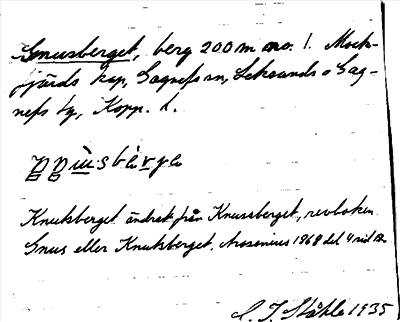 Gnusberget, berg 200 m no. l. Mock-
fjärds kap, Gagnefs sn, Leksands o Gag-
nefs tg, Kopp. l.
Knutsberget ändrat från Knussberget, revboken.
Gnus eller Knutsberget. Arosenius 1868 del 4 sid 12.
C. I. Ståhle 1935